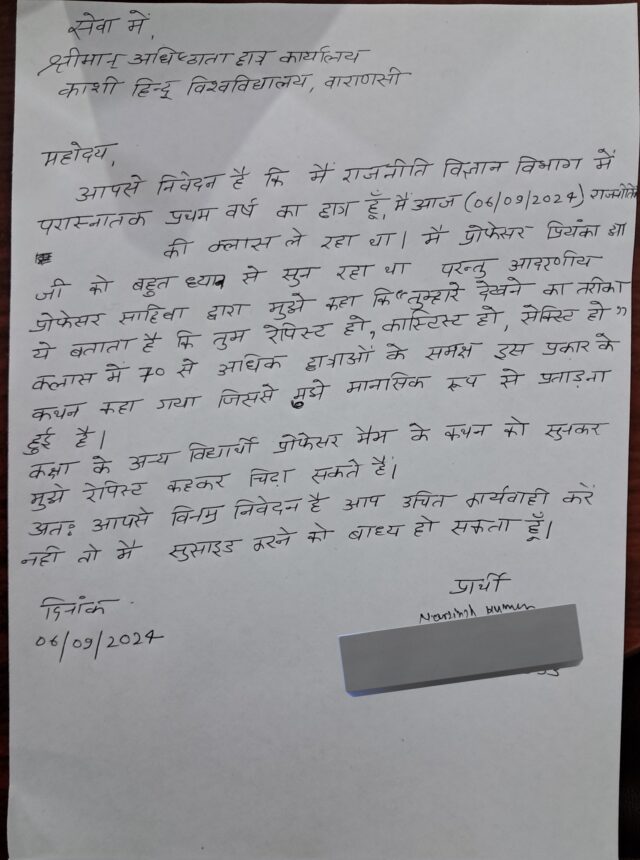 सेवा में,
श्रीमान् अधिष्ठाता छात्र कार्यालय
काशी हिन्दू विश्वविद्यालय, वाराणसी
महोदय,
आपसे निवेदन है कि मैं राजनीति विज्ञान विभाग में
परास्नातक प्रथम वर्ष का छात्र हूँ, मैं आज (06/09/2024)
की क्लास ले रहा था। मै प्रोफेसर प्रियंका झा
जी को बहुत ध्यान से सुन रहा था परन्तु आदरणीय
प्रोफेसर साहिबा द्वारा मुझे कहा कि "तुम्हारे देखने का तरीका
ये बताता है कि तुम रेपिस्ट हो, कास्टिस्ट हो, सेक्सिट हो"
क्लास में 70 से अधिक छात्राओं के समक्ष इस प्रकार के
कथन कहा गया जिससे मुझे मानसिक रूप से प्रताड़ना
हुई है।
कक्षा के अन्य विद्यार्थी प्रोफेसर मैम के कथन को सुनकर
मुझे रेपिस्ट कहकर चिढ़ा सकते हैं।
अतः आपसे विनम्र निवेदन है आप उचित कार्यवाही करें
नही तो मै सुसाइड करने को बाध्य हो सकता हूँ।
प्रार्थी
दिनांक
06/09/2024